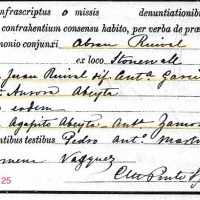 infrascriptus o missis denuntiationib
contrahentium consensu habito, per verba de præ
monio conjunxi Abran Ruival
ex loco Stonewall
Juan Ruival dif. Anta Garci
Aurora Abeyta
eodem
Agapito Abeyta - Anta Zamor
ntibus testibus Pedro Anto Marti
Vazquez
25